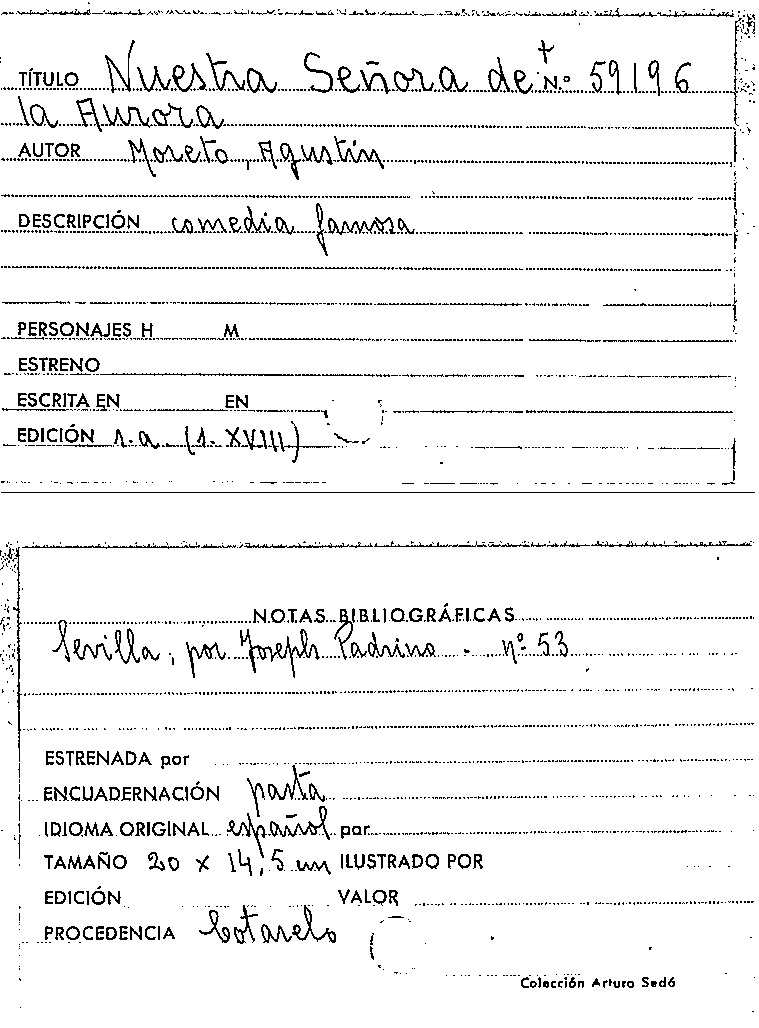 TÍTULO Nuestra Señora de + N.º 59196
la Aurora
AUTOR Moreto, Agustín
DESCRIPCIÓN comedia famosa
PERSONAJES H M
ESTRENO
ESCRITA EN EN
EDICIÓN s.a. (s. XVIII)
NOTAS BIBLIOGRÁFICAS
Sevilla, por Joseph Padrino - nº 53
ESTRENADA por
ENCUADERNACIÓN pasta
IDIOMA ORIGINAL español por
TAMAÑO 20 x 14,5 cm ILUSTRADO POR
EDICIÓN VALOR
PROCEDENCIA Cotarelo
Colección Arturo Sedó